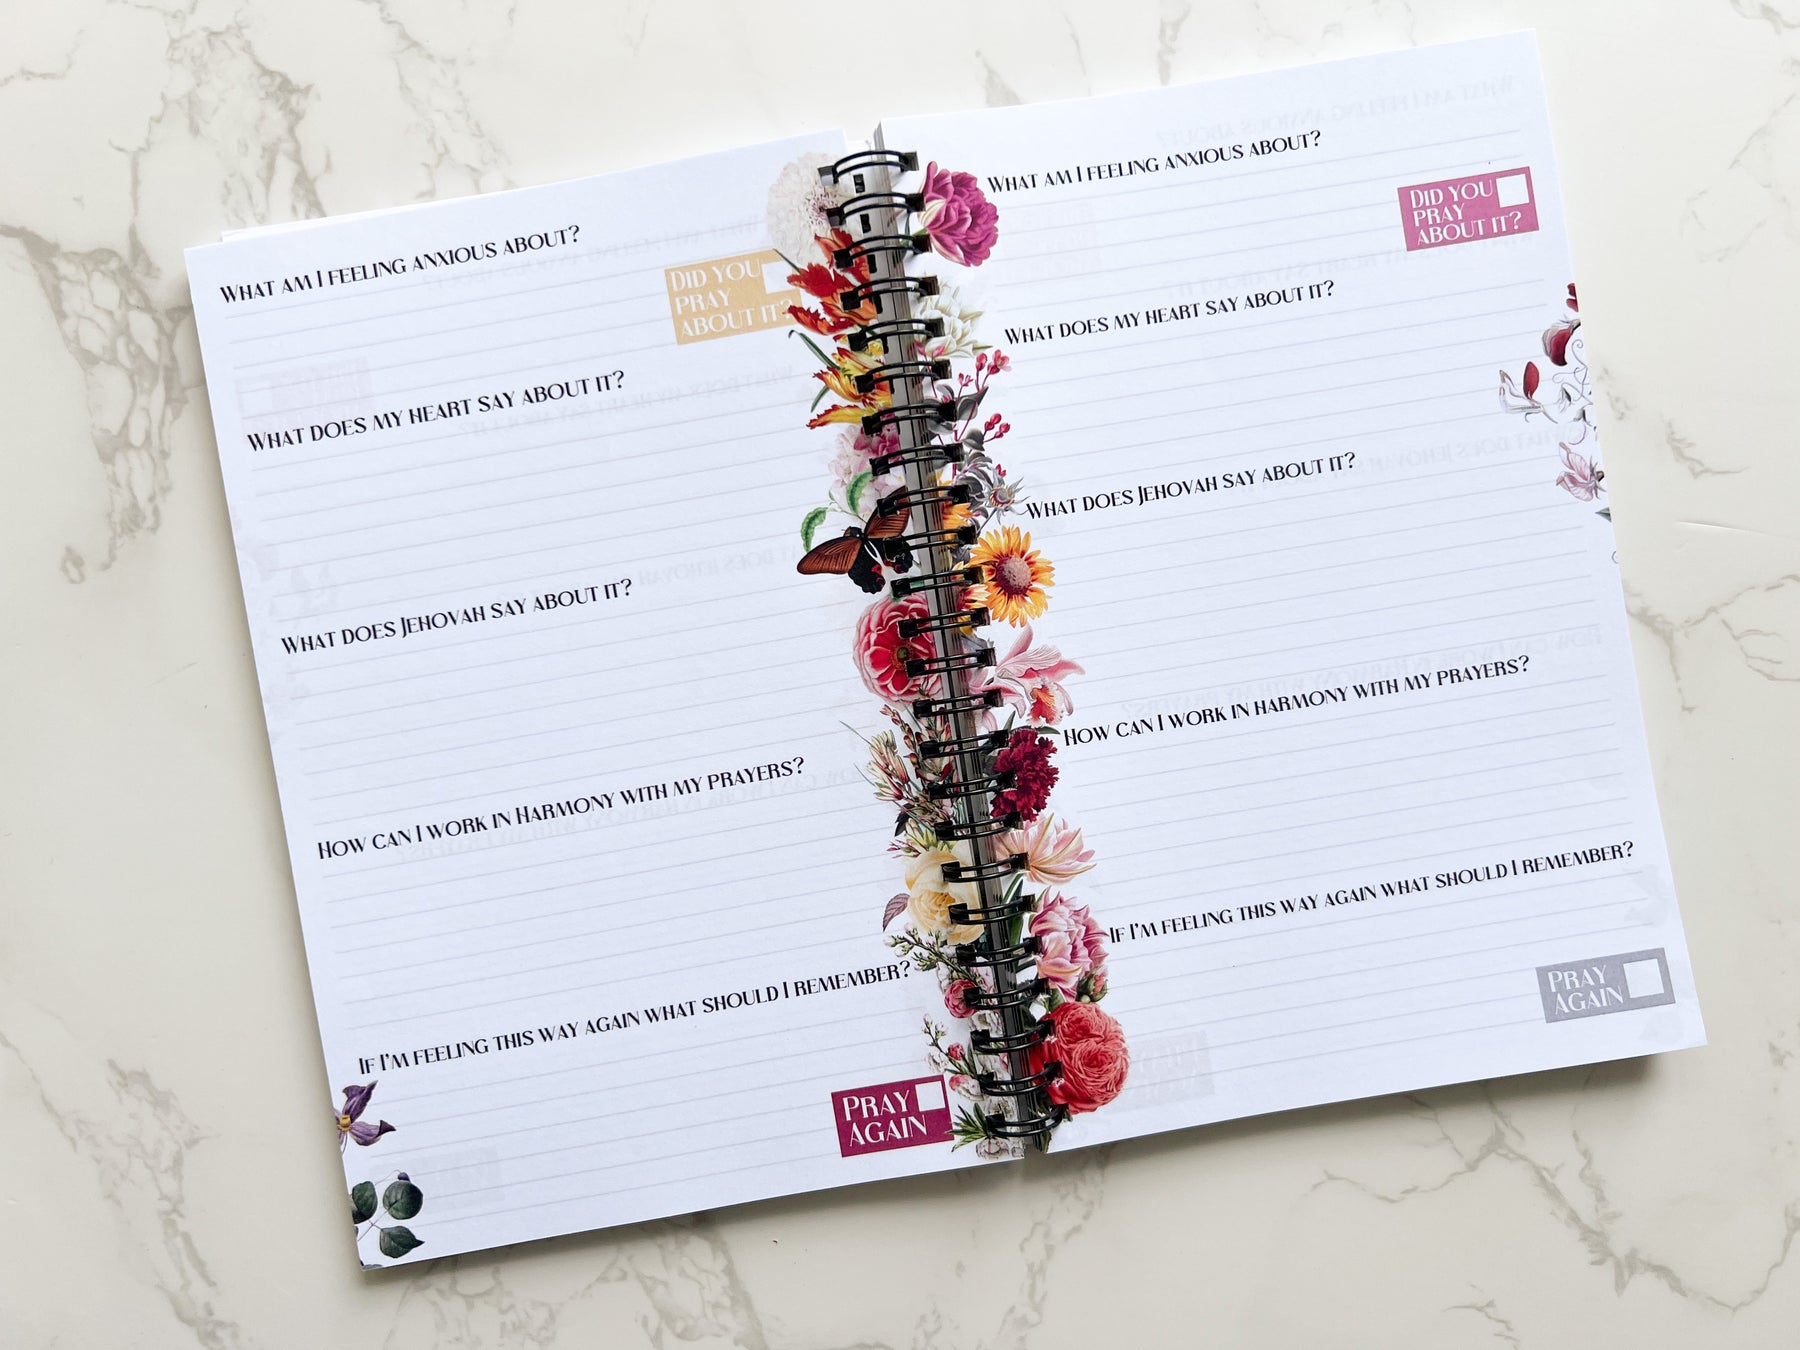 What am I feeling anxious about?
Did you
pray
about it?
What does my heart say about it?
What does Jehovah say about it?
How can I work in Harmony with my prayers?
If I'm feeling this way again what should I remember?
Pray
again
What am I feeling anxious about?
Did you
pray
about it?
What does my heart say about it?
What does Jehovah say about it?
How can I work in harmony with my prayers?
If I'm feeling this way again what should I remember?
Pray
again